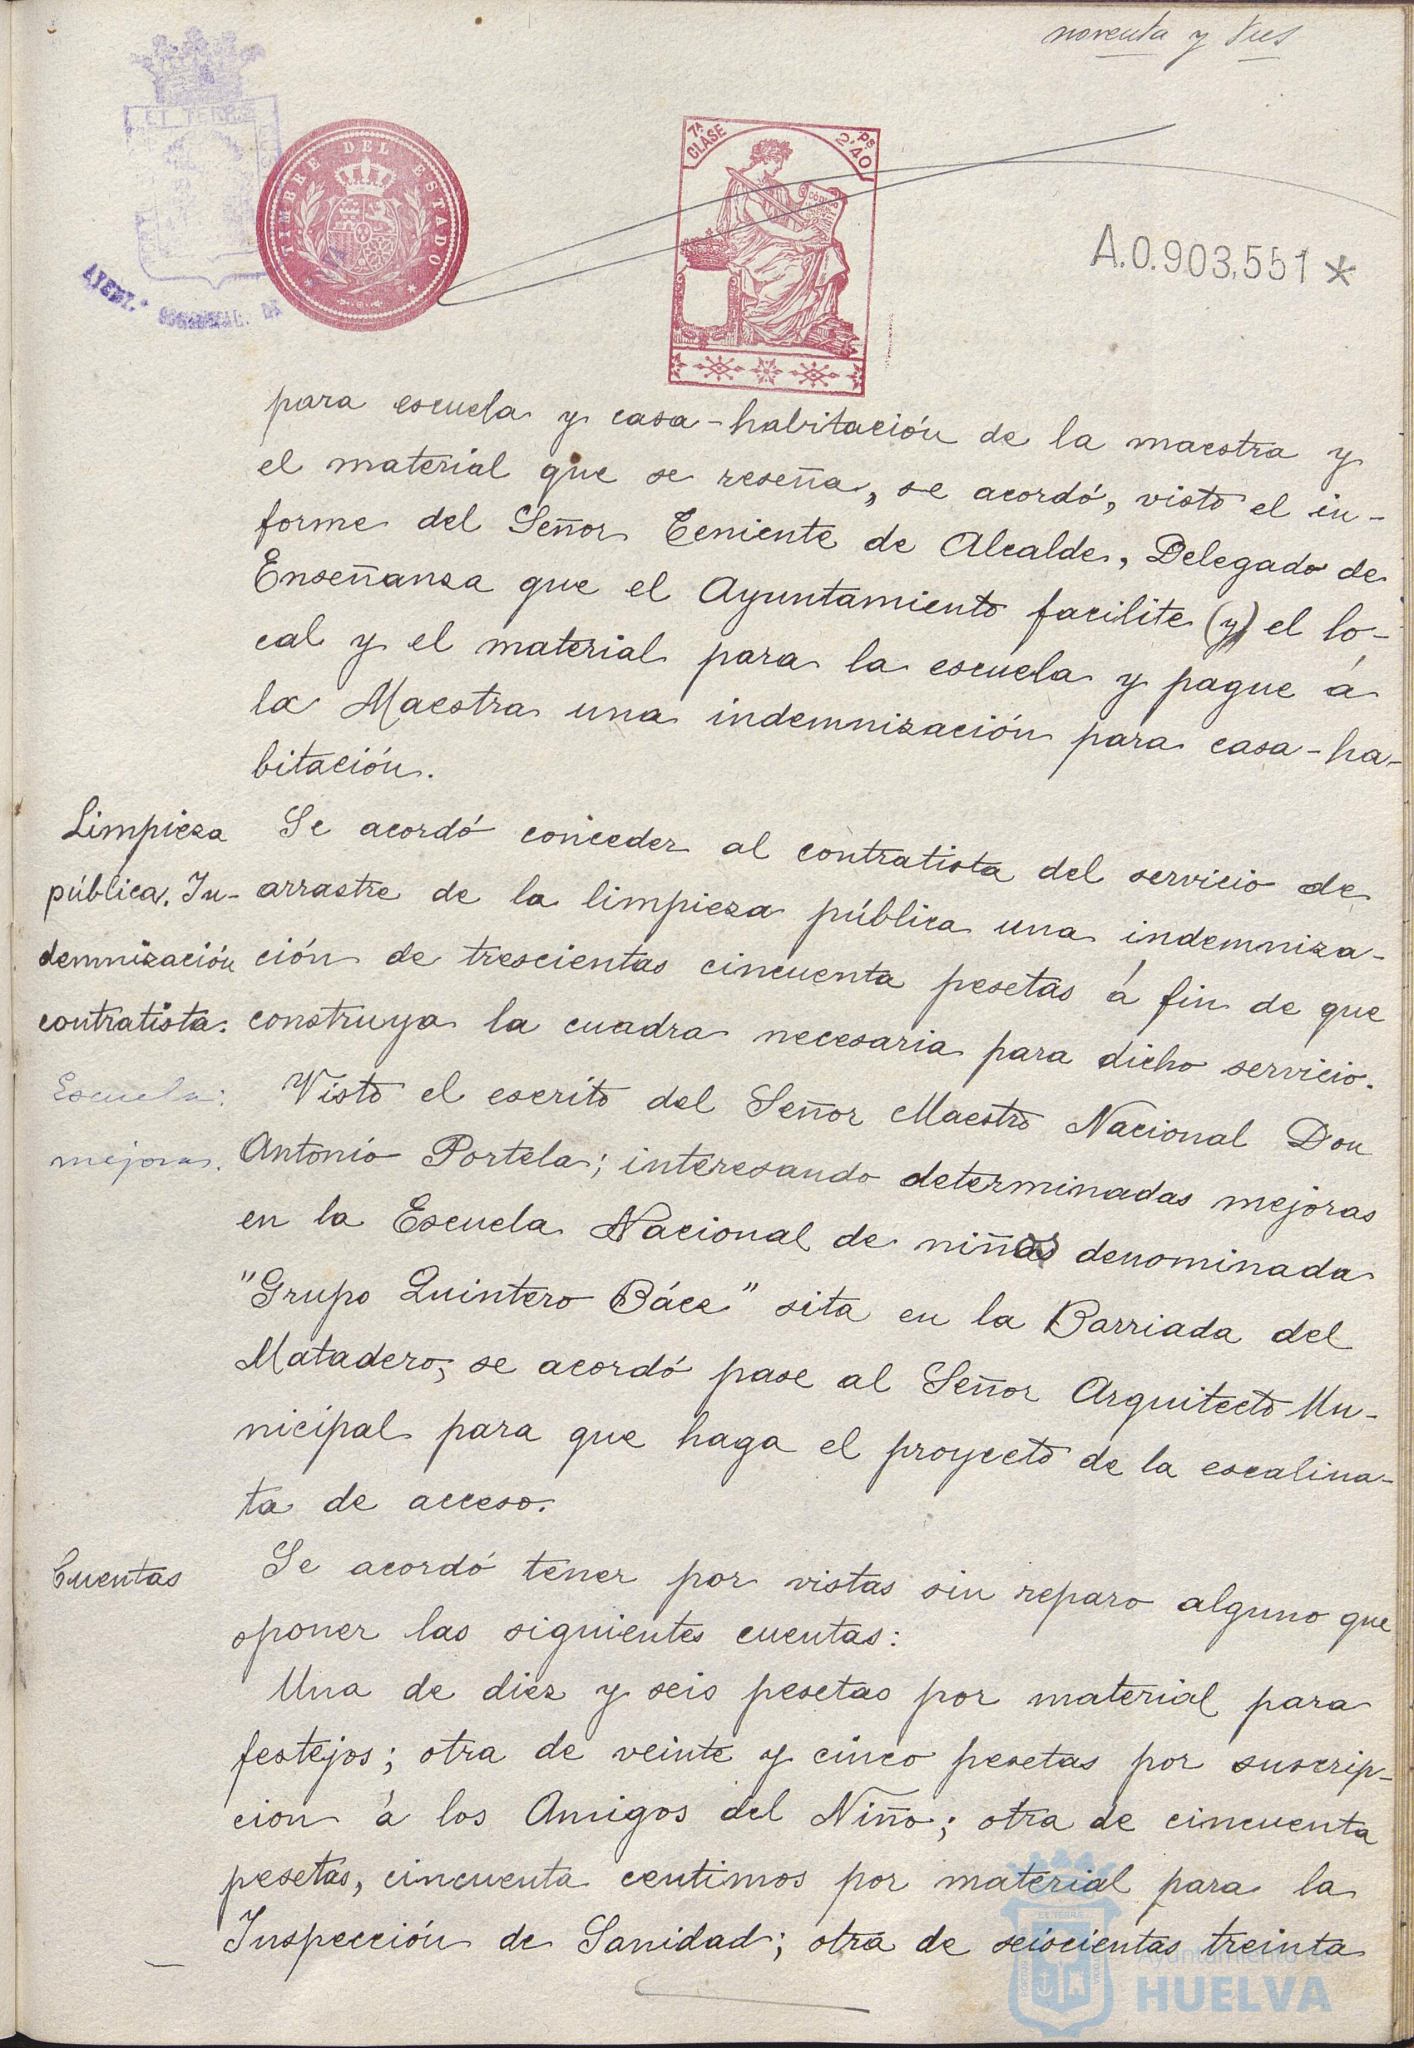 noventa y tres
ET TERRÆ
TIMBRE DEL ESTADO
7ª CLASE
2'40 Ps
A.0.903,551*
para escuela y casa-habitación de la maestra y
el material que se reseña, se acordó, visto el in-
forme del Señor Teniente de Alcalde, Delegado de
Enseñanza que el Ayuntamiento facilite (y) el lo-
cal y el material para la escuela y pague á
la Maestra una indemnización para casa-ha-
bitación.
Limpieza
pública. In-
demnización
contratista.
Se acordó conceder al contratista del servicio de
arrastre de la limpieza pública una indemniza-
ción de trescientas cincuenta pesetas á fin de que
construya la cuadra necesaria para dicho servicio.
Escuela:
mejoras.
Visto el escrito del Señor Maestro Nacional Don
Antonio Portela; interesando determinadas mejoras
en la Escuela Nacional de niños denominada
"Grupo Quintero Báez" sita en la Barriada del
Matadero, se acordó pase al Señor Arquitecto Mu-
nicipal para que haga el proyecto de la escalina-
ta de acceso.
Cuentas
Se acordó tener por vistas sin reparo alguno que
oponer las siguientes cuentas:
Una de diez y seis pesetas por material para
festejos; otra de veinte y cinco pesetas por suscrip-
cion á los Amigos del Niño; otra de cincuenta
pesetas, cincuenta centimos por material para la
Inspección de Sanidad; otra de seiscientas treinta
Ayuntamiento de
HUELVA